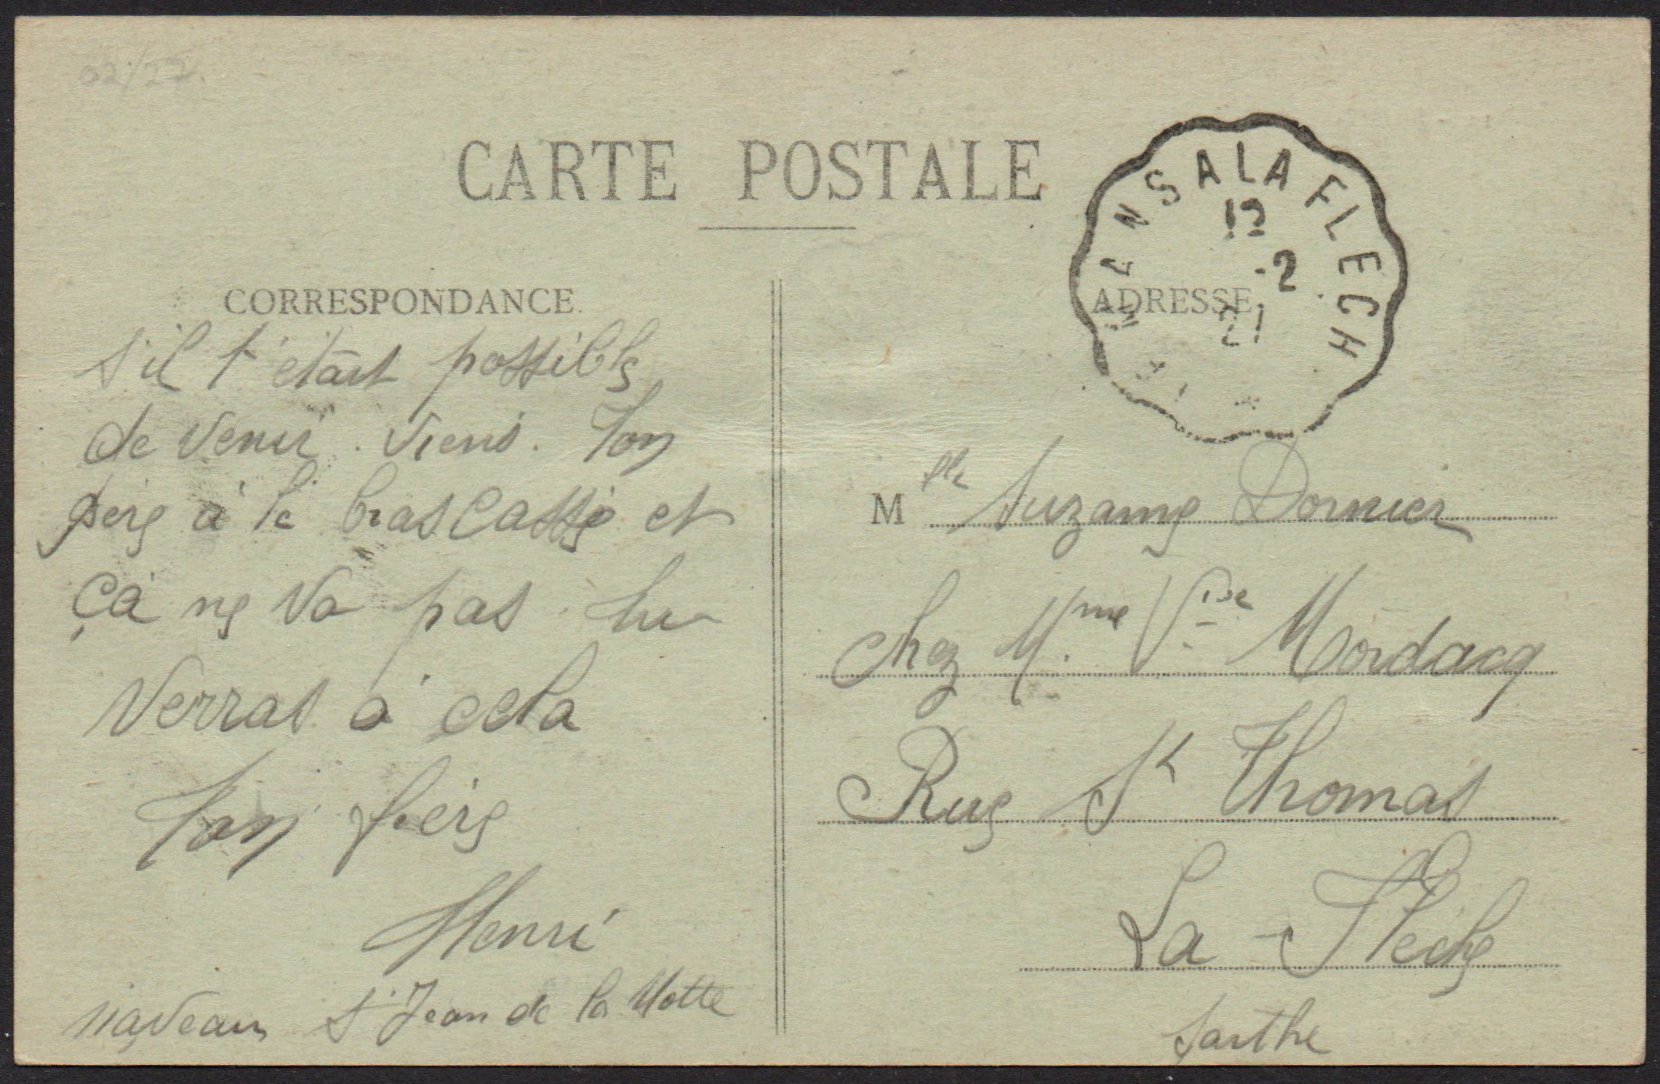 02/22.
CARTE POSTALE
MANS A LA FLECH
12
-2
21
CORRESPONDANCE
ADRESSE
s'il t'était possible
de venir. viens. ton
père à le bras cassé et
ça ne va pas. tu
verras à cela
ton frère
Henri
St Jean de la Motte
Mlle Suzanne Dornier
chez Mme Vve Mordacq
Rue St Thomas
La Flèche
Sarthe